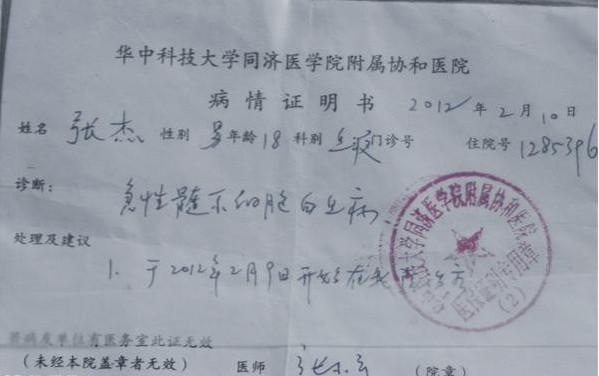 华中科技大学同济医学院附属协和医院
病情证明书 2012年2月10日
姓名 张杰 性别 男 年龄 18 科别 血液 门诊号 住院号 1285396
诊断:
急性髓系细胞白血病
处理及建议
1. 于2012年2月9日开始在我院治疗
医务室此证无效
(未经本院盖章者无效) 医师 (院章)
大学同济医学院附属协和医院
(2)